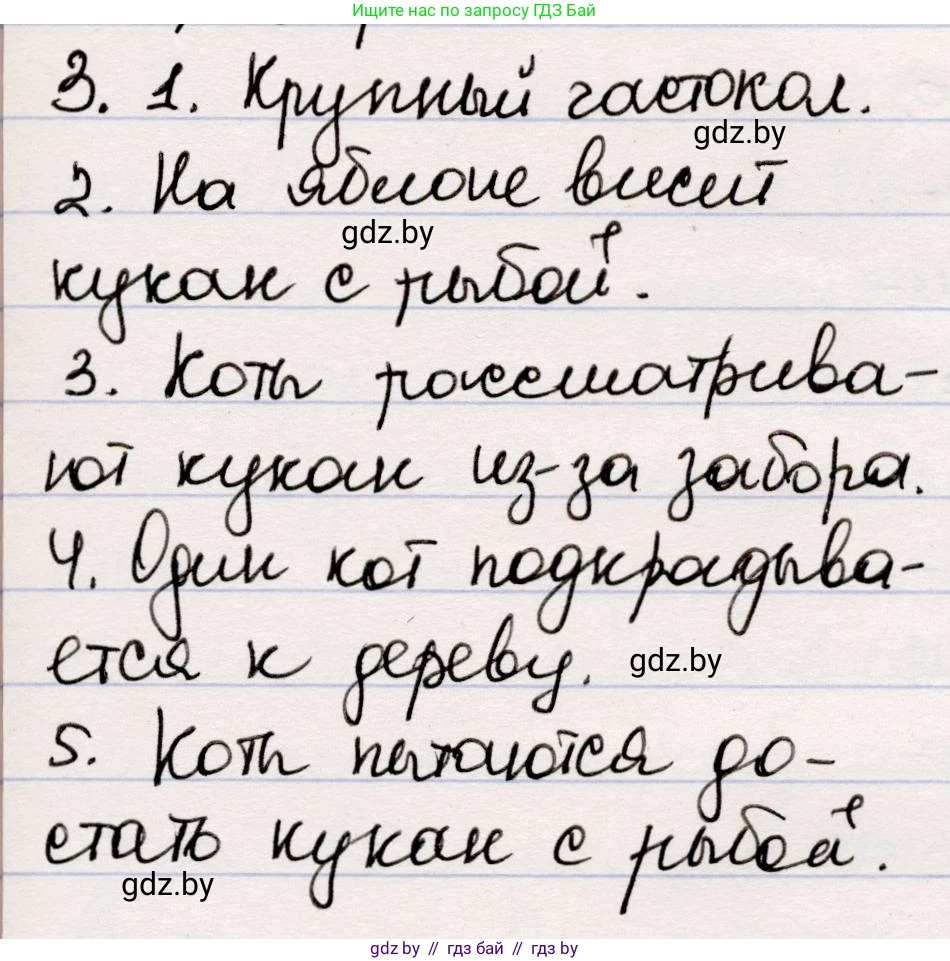 Ищите нас по запросу ГДЗ Бай
3. 1. Крупный частокол.
gdz.by
2. На яблоне висит
gdz.by
кукан с рыбой.
3. Коты рассматрива-
ют кукан из-за забора.
4. Один кот подкрадыва-
ется к дереву. gdz.by
5. Коты пытаются до-
стать кукан с рыбой.
gdz.by
gdz.by // гдз бай // гдз by